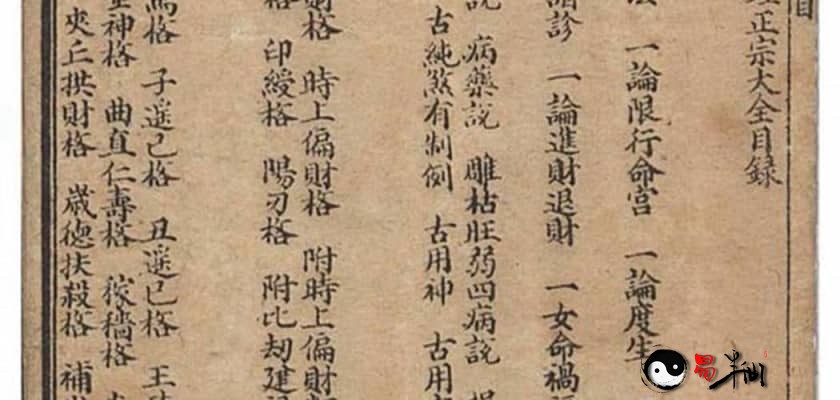 目
正宗大全目錄
一論限行命宮 一論度生
診 一論進財退財 一女命禍
說 病藥說 雕枯旺弱四病說
古純煞有制例 古用神 古用
財格 時上偏財格 附時上偏財
格 印綬格 陽刃格 附比劫建
馬格 子遙巳格 丑遙巳格 壬
神格 曲直仁壽格 稼穡格
夾丘拱財格 歲德扶殺格 補
易